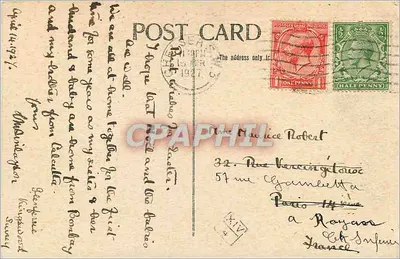 POST CARD
The address only
15 APR
1927
ONE PENNY
HALFPENNY
April 14. 1927.
Best wishes for Easter.
I hope that you and the babies
are well.
We are all at home together for the first
time for some years as my sister & her
husband & baby are home from Bombay
and my brother from Calcutta.
Yours
Kingswood
Surrey
Mme Maurice Robert
32. Rue Vercingétorix
57 rue Gambetta
Paris 14
à Royan
Ch Infér
France
XIV
CPAPHIL